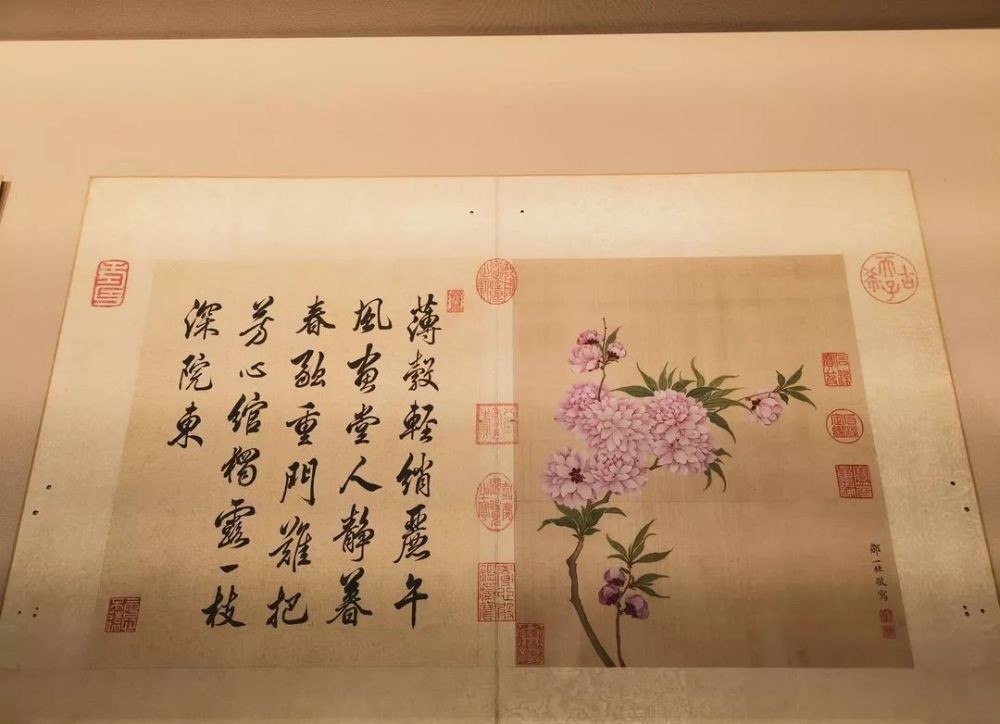 古希天子
石渠寶笈
鄒一桂敬寫
薄縠輕綃麗午
風畫堂人靜暮
春融重門難把
芳心綰獨露一枝
深院東